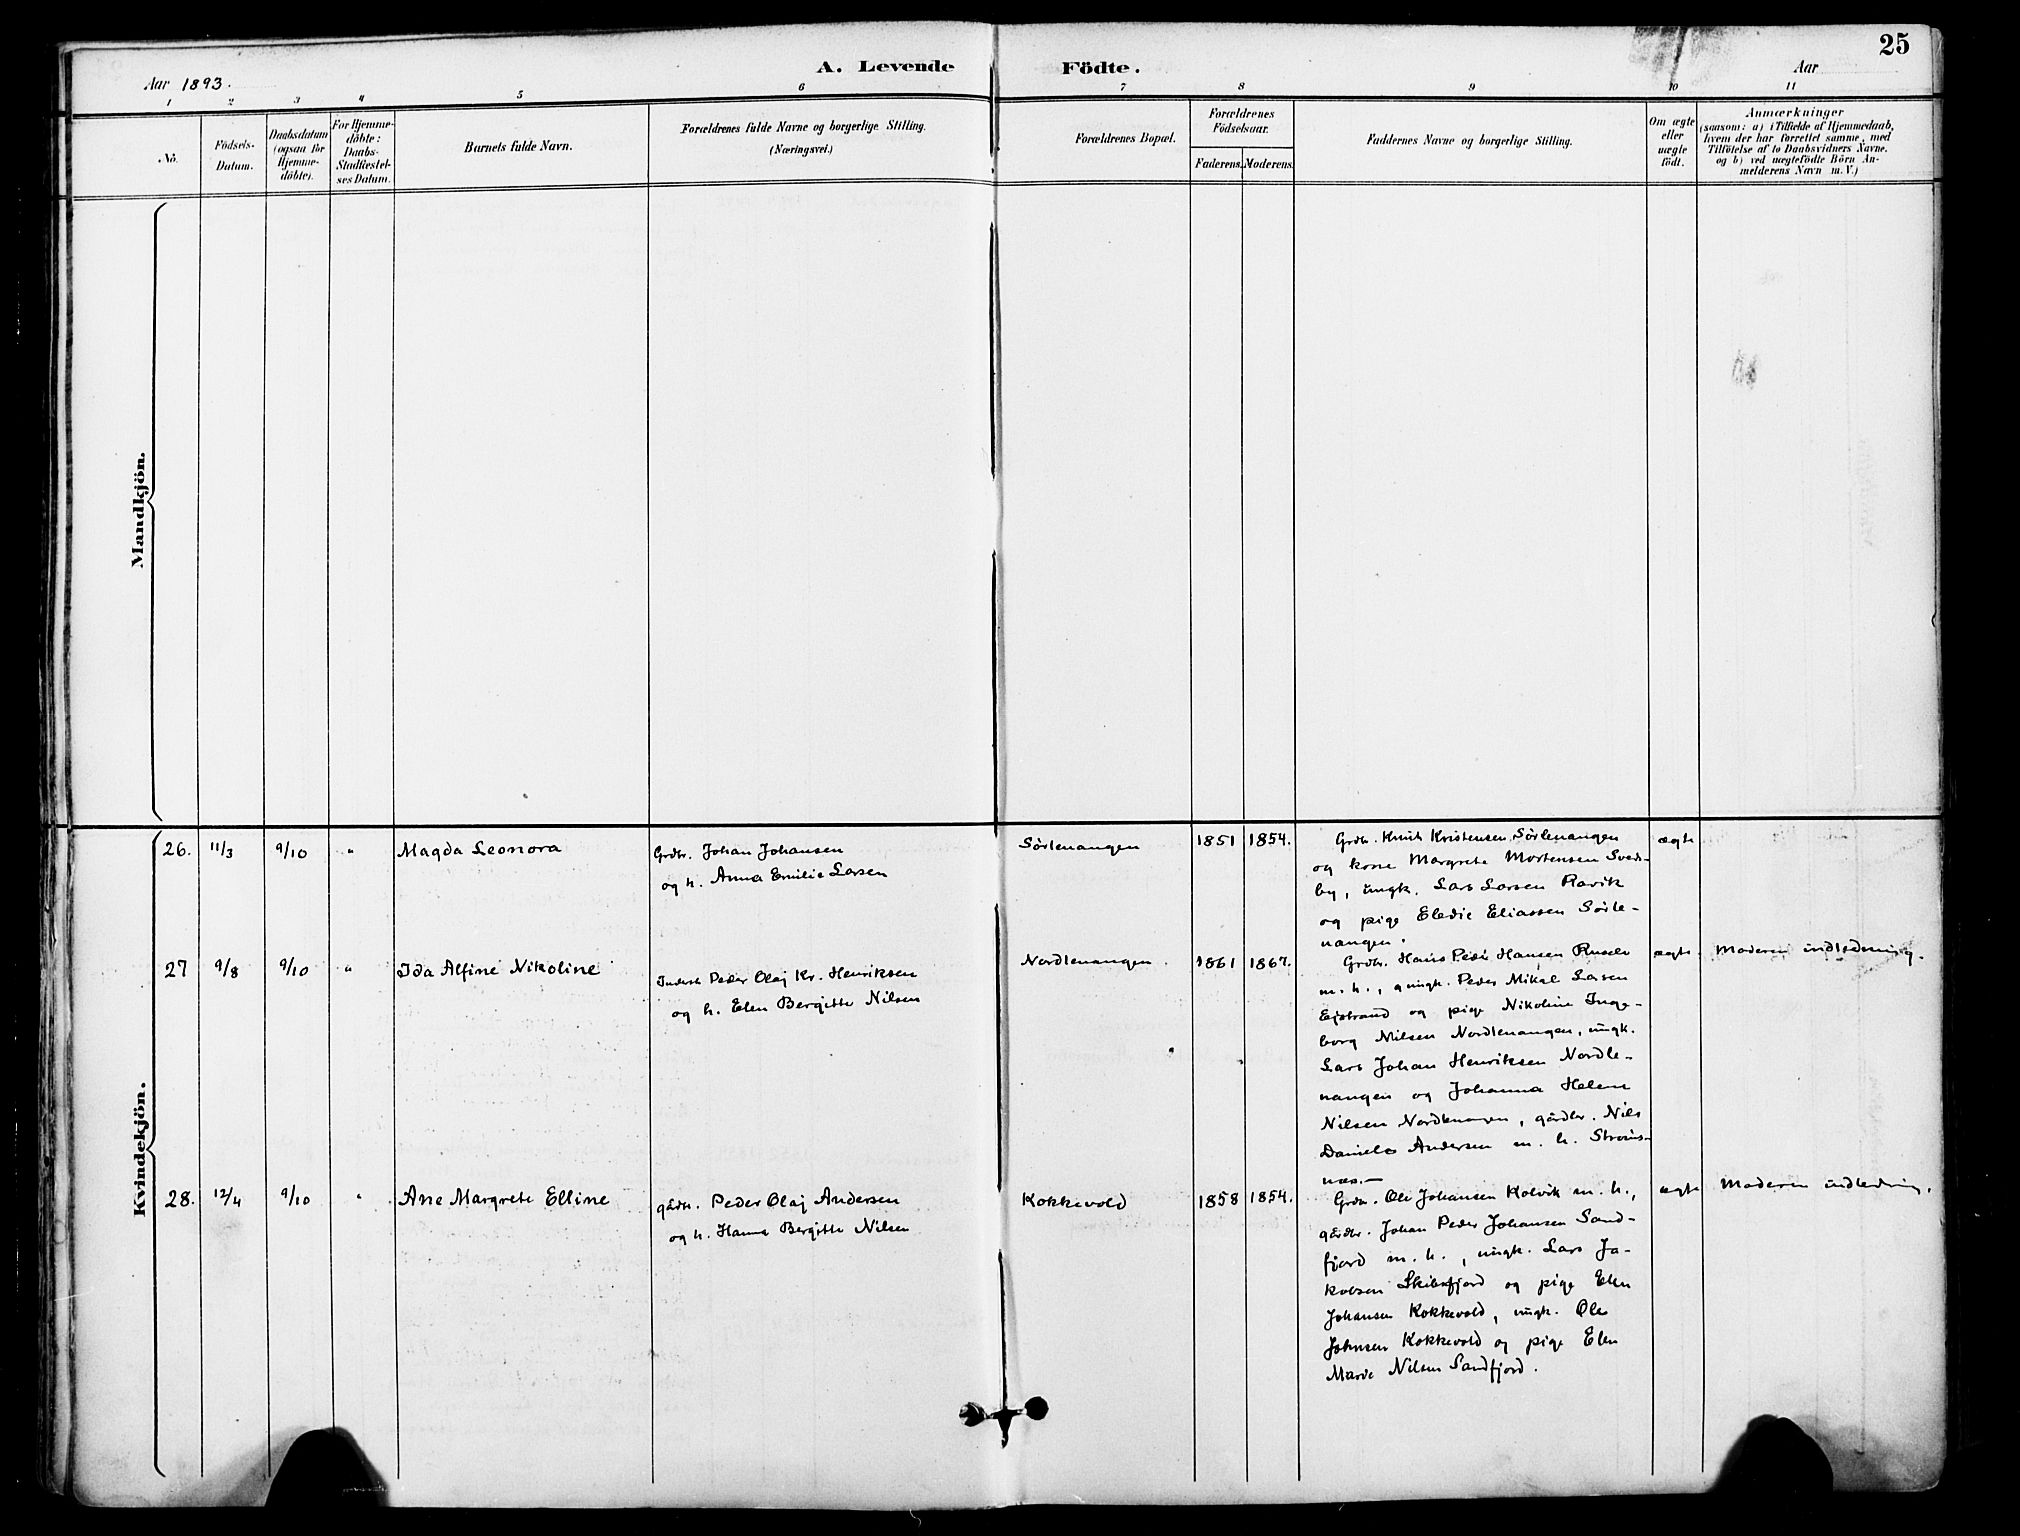 25
A. Levende Födte.
Aar 1893.
Aar
1 2 3 4 5 6 7 8 9 10 11
No.
Födsels-
Datum.
Daabsdatum
(ogsaa for
Hjemme-
döbte).
For Hjemme-
döbte:
Daabs-
Stadfæstel-
ses Datum.
Barnets fulde Navn.
Forældrenes fulde Navne og borgerlige Stilling.
(Næringsvei.)
Forældrenes Bopæl.
Forældrenes
Födselsaar.
Faderens. Moderens.
Faddernes Navne og borgerlige Stilling.
Om ægte
eller
uægte
födt.
Anmærkninger
(saasom: a) i Tilfælde af Hjemmedaab,
hvem der har forrettet samme, med
Tilföielse af to Daabsvidners Navne.
og b) ved uægtefödte Börn An-
melderens Navn m. V.)
Mandkjön.
Kvindekjön.
26. 11/3 9/10 " Magda Leonora
Grdbr. Johan Johansen
og h. Anna Emilie Larsen
Sörlenangen 1851 1854.
Grdbr. Knut Kristensen Sörlenangen
og kone Margrete Mortensen Svens-
by, ungk. Lars Larsen Ravik
og pige Eledie Eliassen Sörle-
nangen.
ægte
27 9/8 9/10 " Ida Alfine Nikoline
Inderst Peder Olaj Kr. Henriksen
og h. Elen Bergitte Nilsen
Nordlenangen. 1861 1867.
Grdbr. Hans Peder Hansen
m. h., ungk. Peder Mikal Larsen
Ejdstrand og pige Nikoline Inge-
borg Nilsen Nordlenangen, ungk.
Lars Johan Henriksen Nordle-
nangen og Johanna Helene
Nilsen Nordlenangen, gårdbr. Nils
Daniel Andersen m. h. Ströms-
næs.—
ægte. Moderen indledning.
28. 12/4 9/10 " Ane Margrete Elline
gårdbr. Peder Olaj Andersen
og h. Hanna Bergitte Nilsen
Kokkevold 1858 1854.
Grdbr. Ole Johansen Kolvik m. h.,
gårdbr. Johan Peder Johansen Sand-
fjord m. h., ungk. Lars Ja-
kobsen Skibsfjord og pige Elen
Johansen Kokkevold, ungk. Ole
Johnsen Kokkevold og pige Elen
Marie Nilsen Sandfjord.
ægte Moderen indledning.